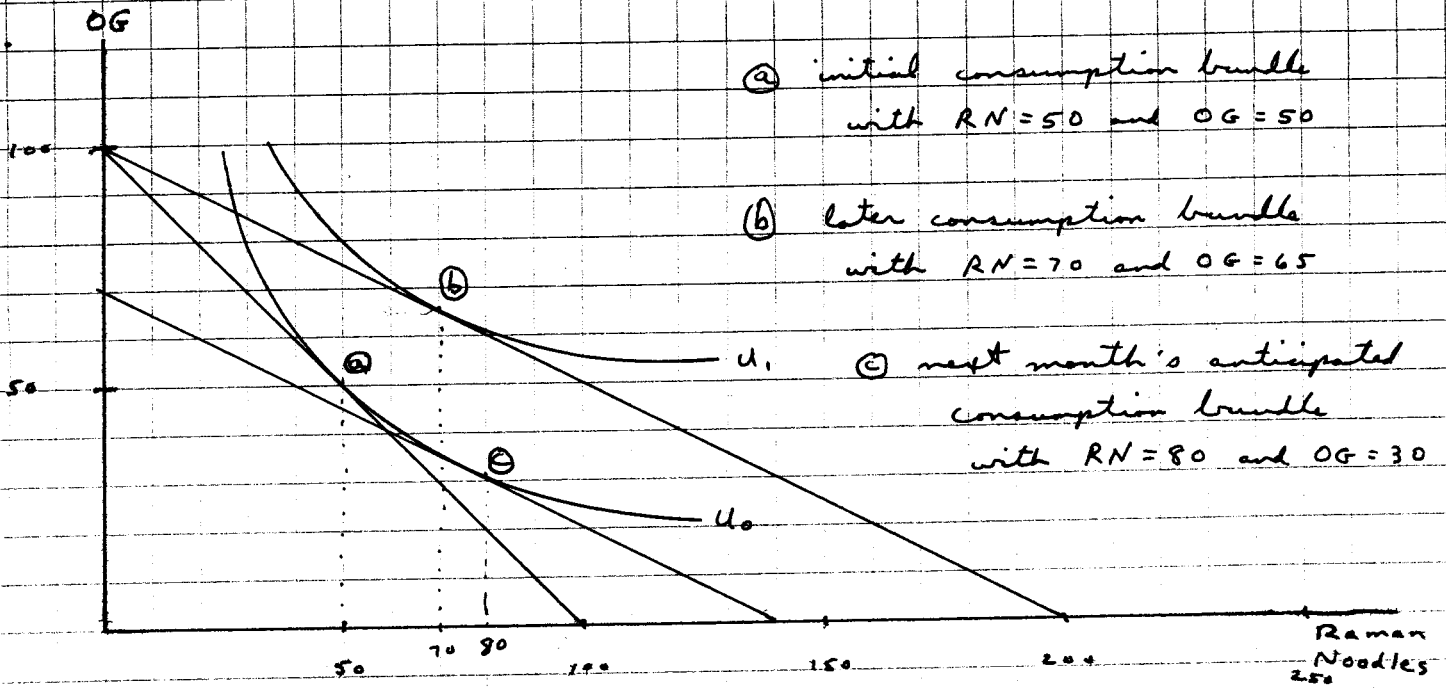 OG
ⓐ initial consumption bundle
with RN = 50 and OG = 50
100
ⓑ later consumption bundle
with RN = 70 and OG = 65
ⓑ
ⓐ
U₁
ⓒ next month's anticipated
consumption bundle
with RN = 80 and OG = 30
50
ⓒ
U₀
50
70
80
100
150
200
250
Raman
Noodles